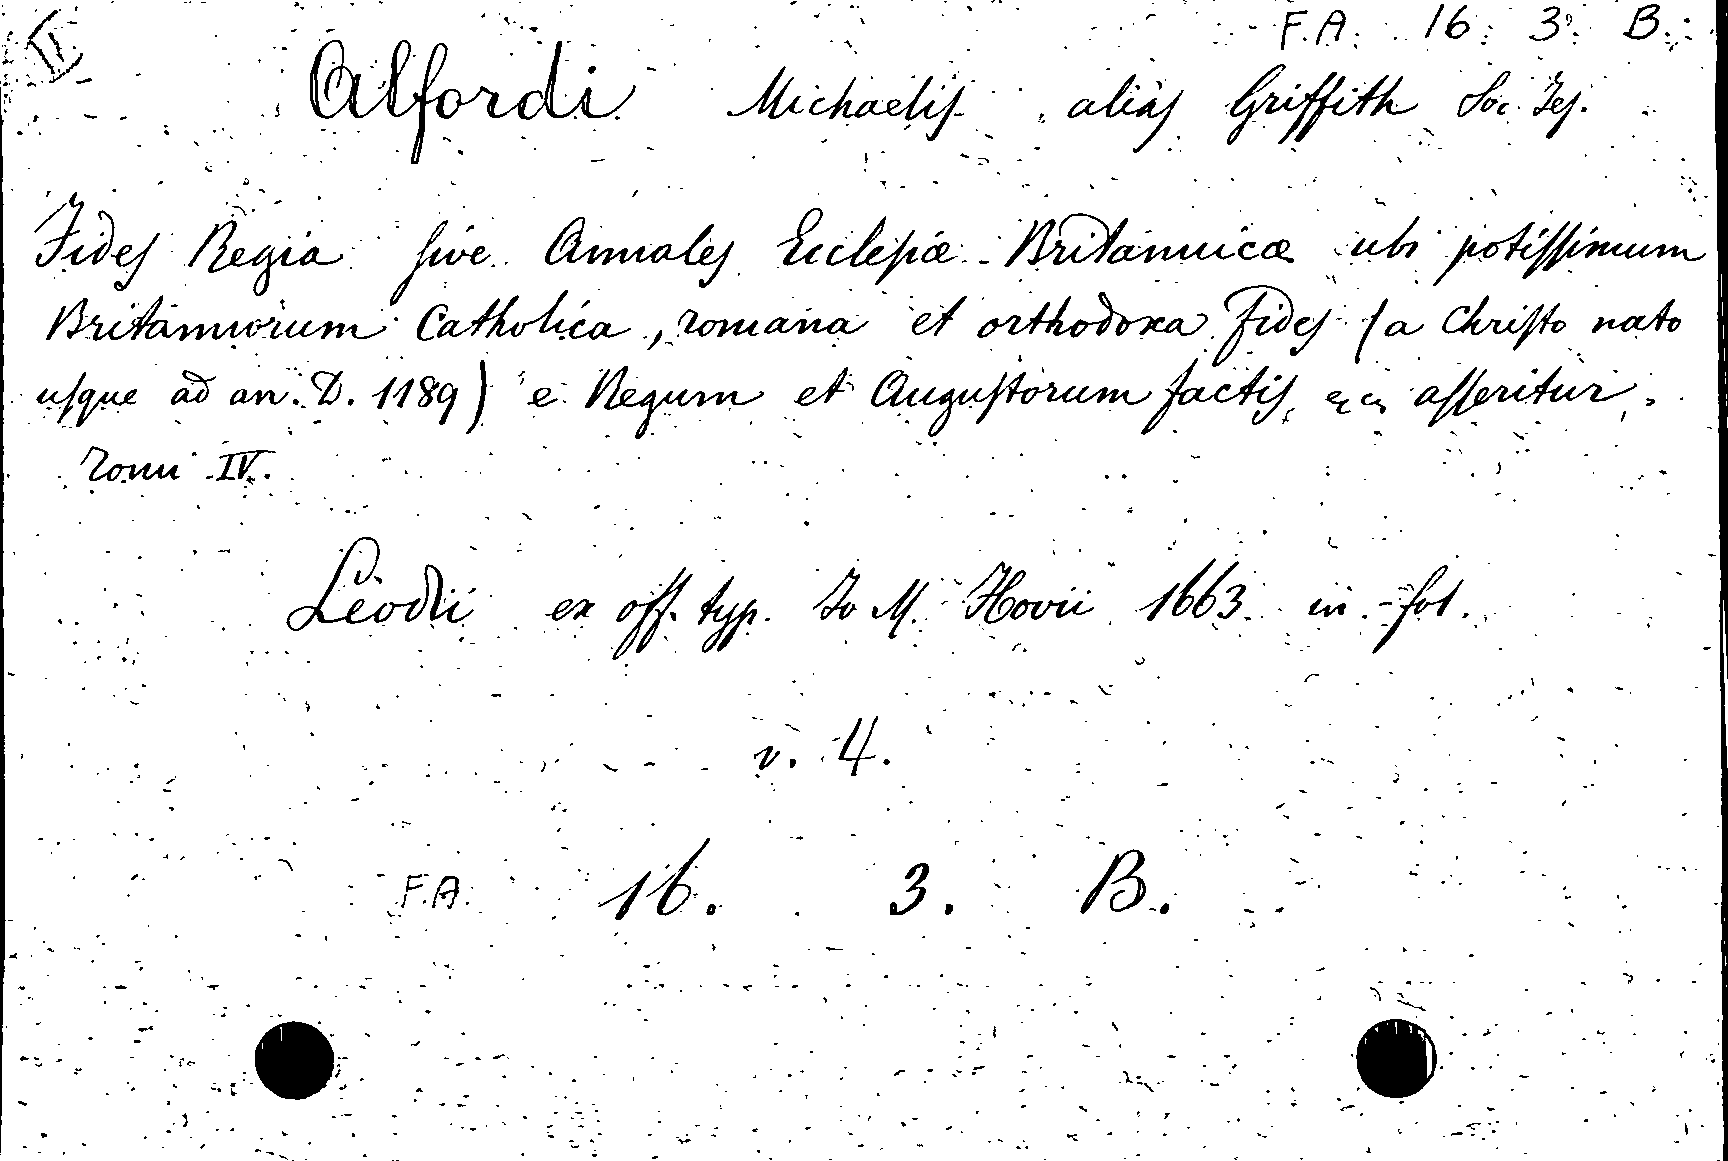 F.A. 16. 3. B.
II
Alfordi Michaelis alias Griffith Soc. Jes.
Fides Regia sive Annales Ecclesiæ Britannicæ ubi potissimum
Britannorum Catholica, romana et orthodoxa fides (a Christo nato
usque ad an. D. 1189) e Regum et Augustorum factis, asseritur.
Tomi IV.
Leodii ex off. typ. Jo M. Hovii 1663. in-fol.
v. 4.
F.A. 16. 3. B.